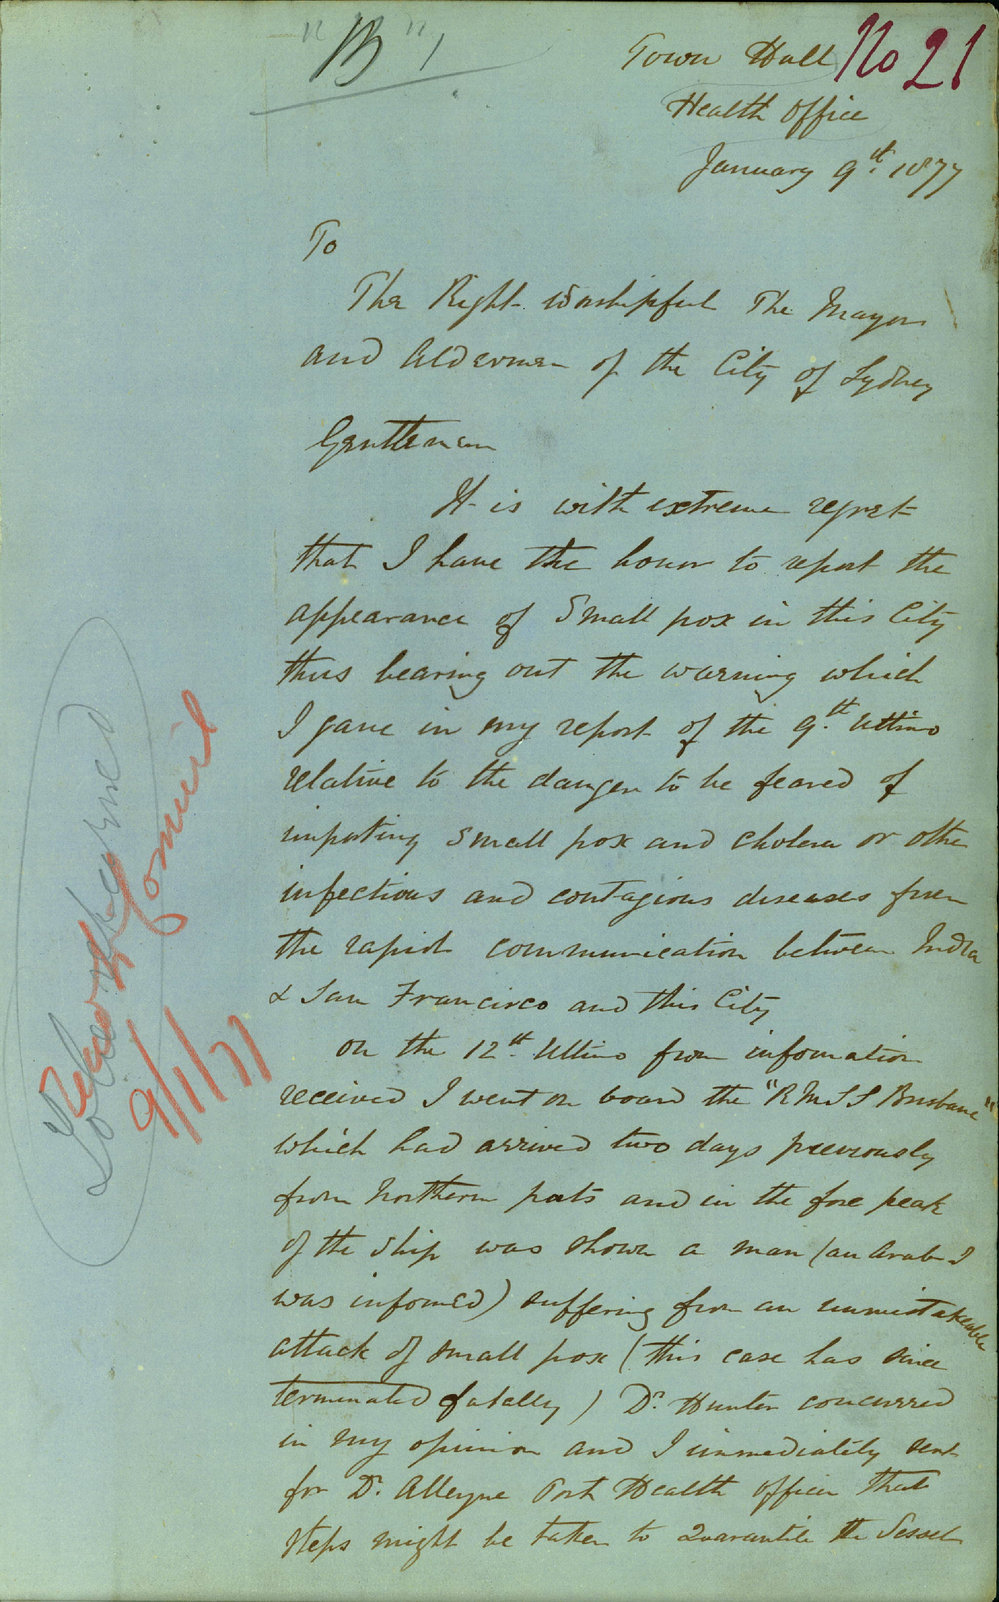 "B" 1
No 21
Town Hall
Health Office
January 9th. 1877
To
The Right Worshipful The Mayor
and Aldermen of the City of Sydney
Gentlemen
It is with extreme regret
that I have the honor to report the
appearance of Small pox in this City
thus bearing out the warning which
I gave in my report of the 9th. Ultimo
relative to the danger to be feared of
importing small pox and cholera or other
infectious and contagious diseases from
the rapid communication between India
& San Francisco and this City
On the 12th. Ultimo from information
received I went on board the "RMSS Brisbane"
which had arrived two days previously
from Northern ports and in the fore peak
of the ship was shown a man (an Arab I
was informed) suffering from an unmistakeable
attack of small pox (this case has since
terminated fatally) Dr. Hunter concurred
in my opinion and I immediately sent
for Dr. Alleyne Port Health Officer that
steps might be taken to Quarantile the Vessel
To be
Read Council
9/1/77